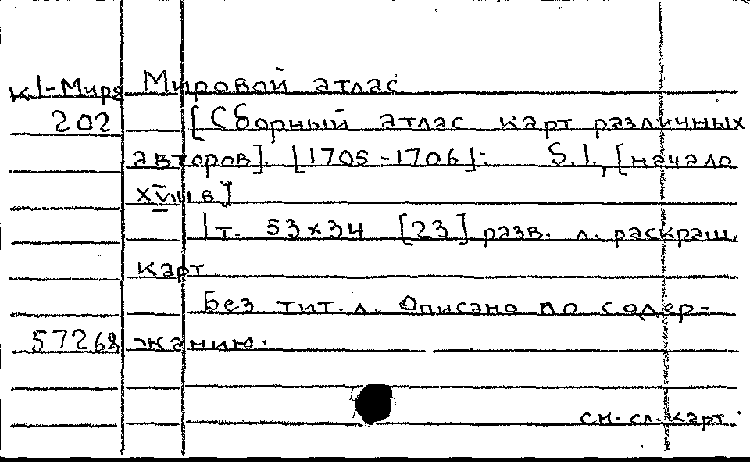 К1-Мира Мировой атлас
202 [Сборный атлас карт различных
авторов]. [1705-1706]: S.l., [начало
XVIII в]
1 т. 53x34 [23] разв. л. раскраш.
карт
Без тит. л. Описано по содер-
57268 жанию.
см. сл. карт.